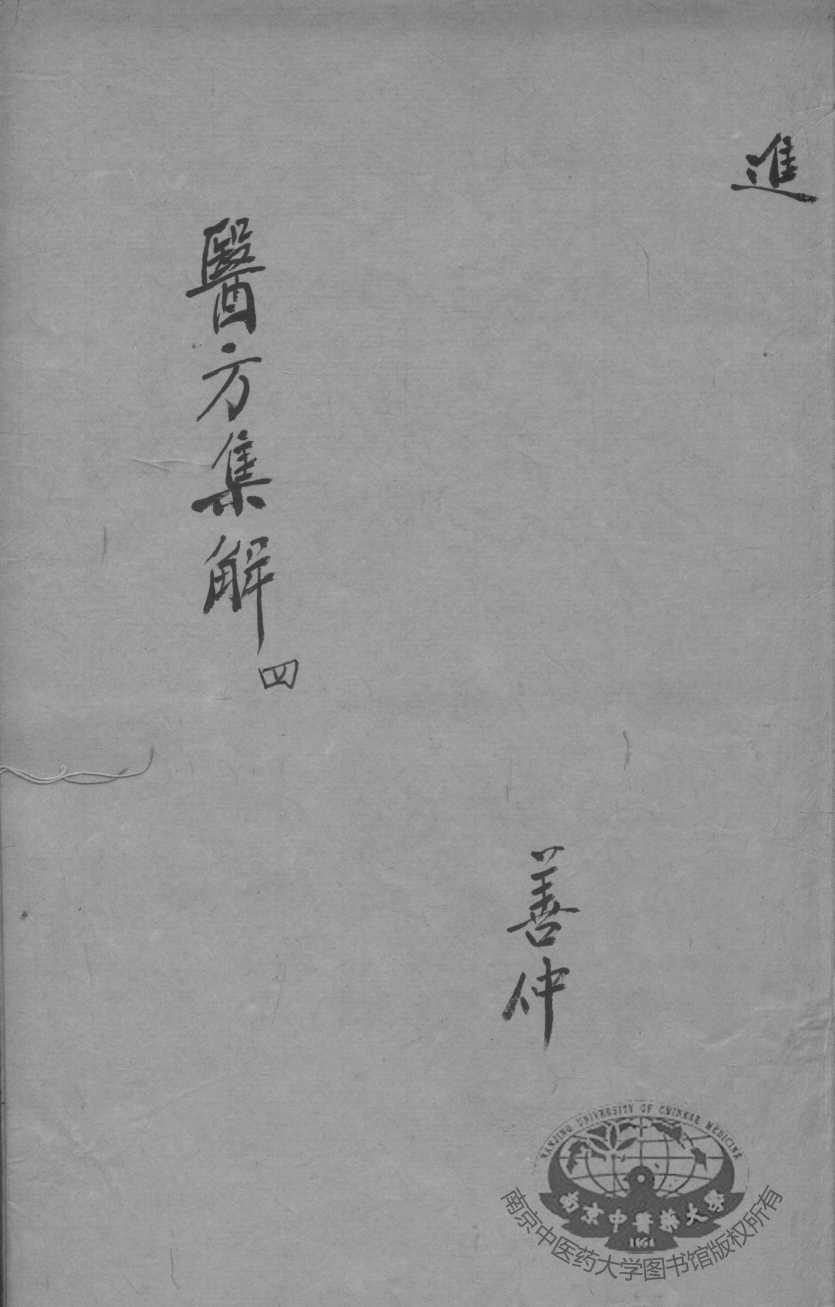 進
醫方集解 四
善仲
NANJING UNIVERSITY OF CHINESE MEDICINE
南京中醫藥大學
1954
南京中医药大学图书馆版权所有